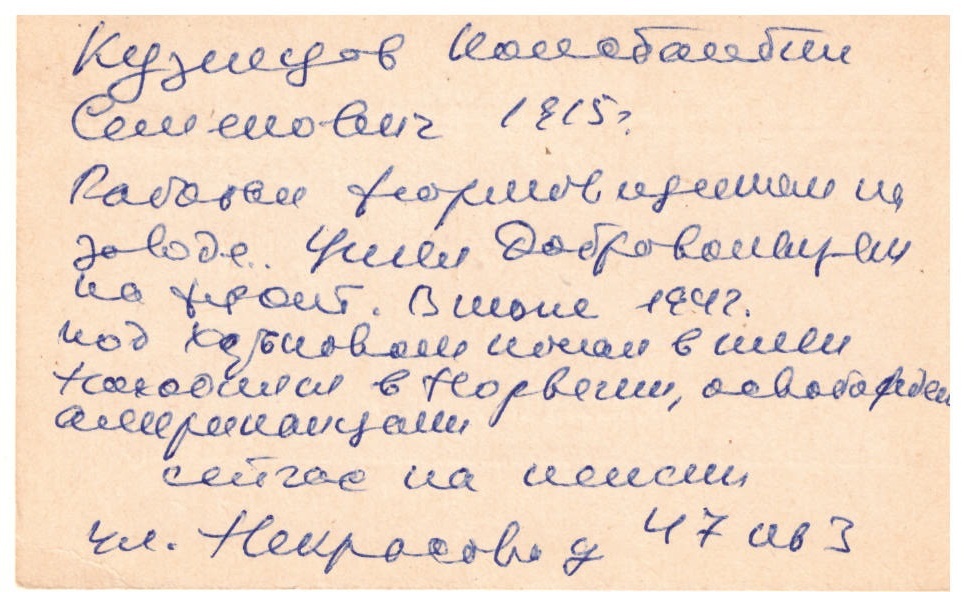 Кузнецов Константин
Семенович 1915г.
Работал формовщиком на
заводе.. Ушел Добровольцем
на фронт. В июне 1942.
под Харьковом попал в плен
Находился в Норвегии, освобожден
американцами
сейчас на пенсии
ул. Некрасова д 47 кв 3